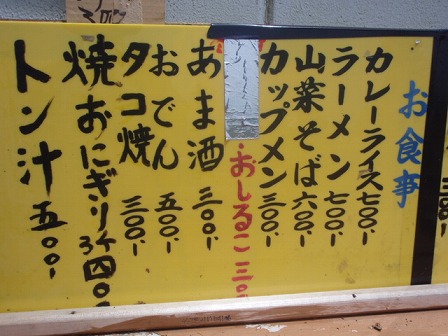 お食事
カレーライス 七〇〇、
ラーメン 七〇〇、
山菜そば 六〇〇、
カップメン 三〇〇、
・おしるこ 三〇
あま酒 三〇〇、
おでん 五〇〇、
タコ焼 三〇〇、
焼おにぎり 3ケ 四〇〇
トン汁 五〇〇、